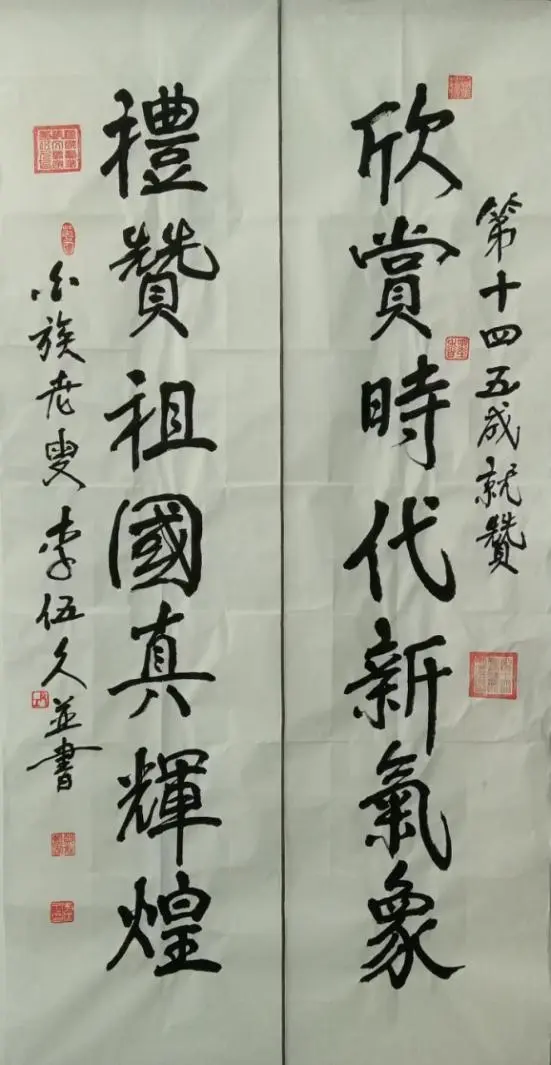 第十四五成就贊
欣賞時代新氣象
禮贊祖國真輝煌
白族老叟李伍久並書